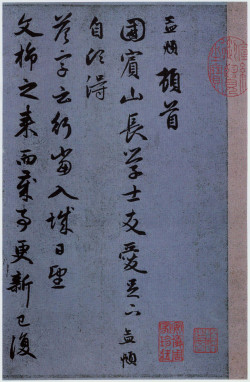 孟頫頓首
國賓山長學士友愛足下孟頫
自頃得
答字云行當入城日望
文旆之来而蔑爾更新已復